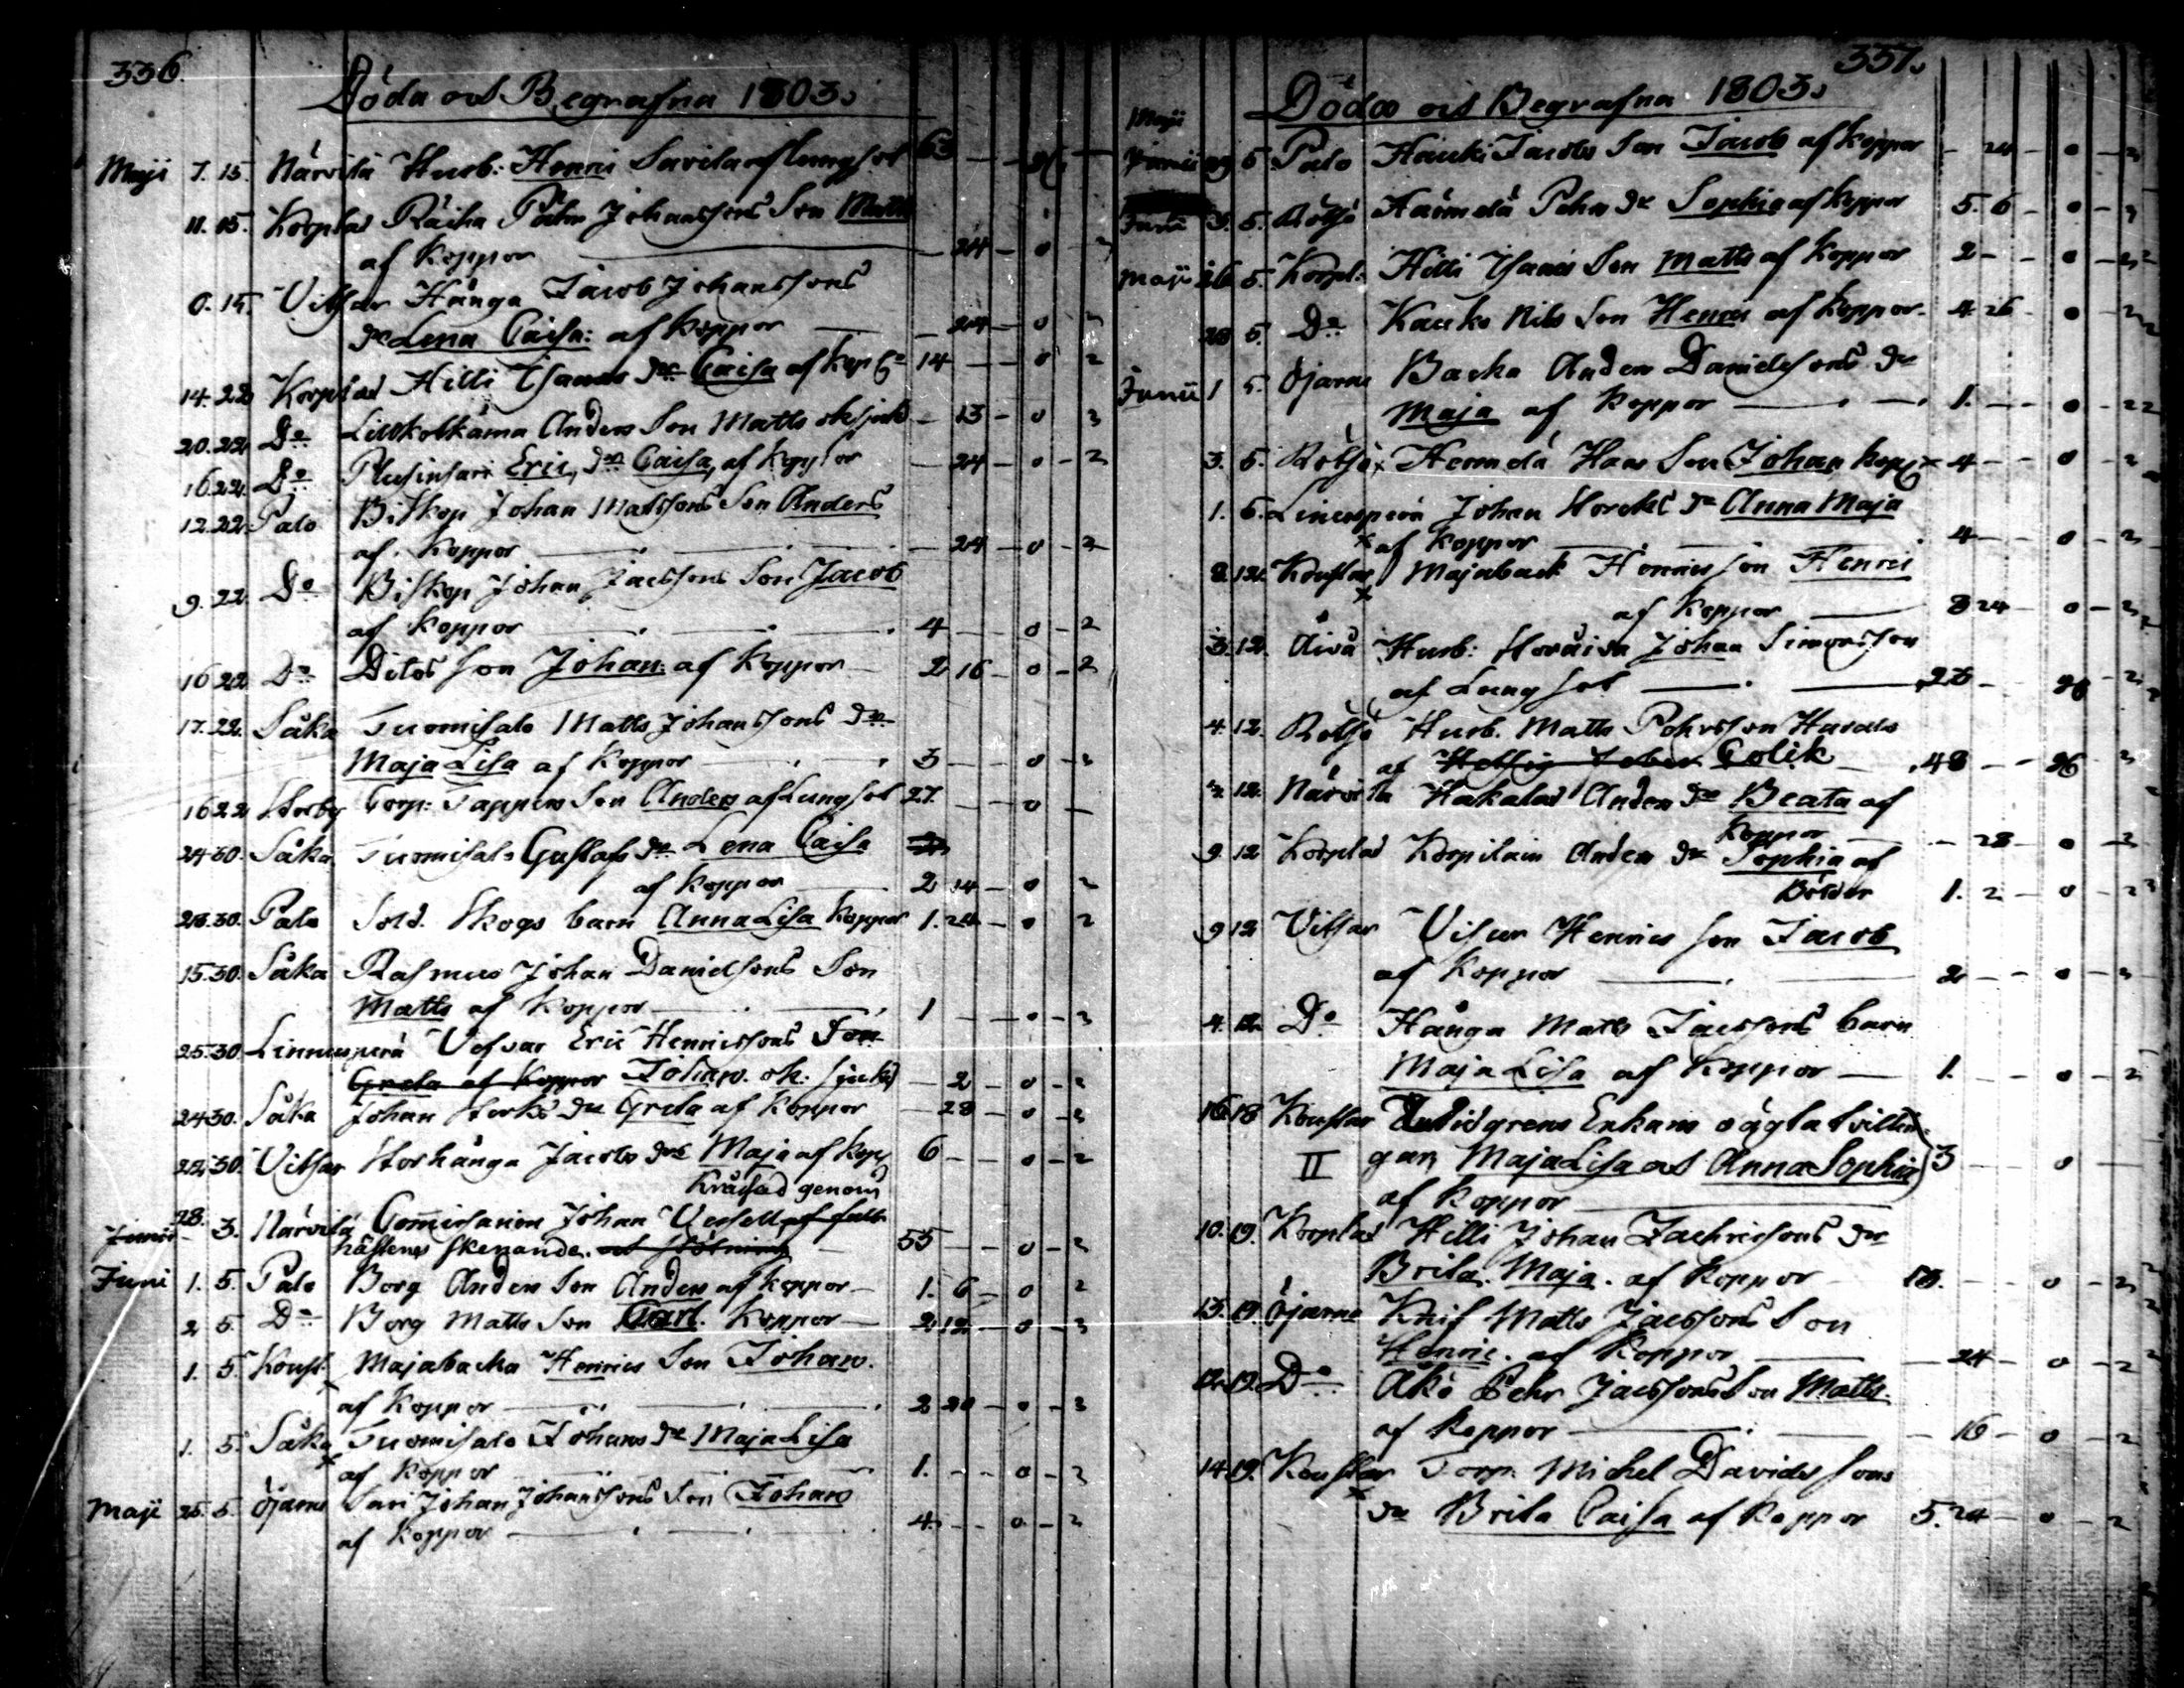 336.
Döda och Begrafna 1803.
Maji 7. 15. Närvilä Husb: Henric Savila af lungsot 63 - -
11. 15. Korplax Räiha Pehr Johanssons Son Matts
af Koppor - 24 - 0 - 2
15. Vitsar Hånga Jacob Johanssons
dr Lena Caisa: af koppor - 24 - 0 - 2
14. 22 Korplax Hilli Isaacs dr Caisa af kop 14 - - 0 - 2
20. 22 Do Anders Son Matts ok sjukd - 13 - 0 - 2
16. 22. Do Eric, dr Caisa, af koppor - 24 - 0 - 2
12. 22 Palo Biskop Johan Matssons Son Anders
af Koppor - 24 - 0 - 2
9. 22 Do Biskop Johan Jacssons Son Jacob
af Koppor 4 - - 0 - 2
16 22 Do Ditos son Johan: af Koppor 2 16 - 0 - 2
17. 22. Såka Tuomisalo Matts Johanssons dr
Maja Lisa af Koppor 3 - - 0 - 2
16 22 Storby Torp: Tappers Son Anders af Lungsot 27. - - 0 -
24 30. Såka Tuomisalo Gustafs dr Lena Caisa
af koppor 2 14 - 0 - 2
28. 30. Palo Sold. Skogs barn Anna Lisa koppor 1. 24 - 0 - 2
15. 30. Såka Rasmus Johan Danielsons Son
Matts af Koppor 1 - - 0 - 2
25. 30 Linnusperä Vefvar Eric Henricssons Son
Greta af Koppor Johan. ok: sjukd - 2 - 0 - 2
24 30. Såka Johan Storks dr Greta af Koppor - 28 - 0 - 2
22. 30. Vitsar Storhånga Jacobs dr Maja af kopp 6 - - 0 - 2
Kråssad genom
Junii 28. 3. Närvilä Comissarien Johan Vessell af fall
hästens skenande. 55 - - 0 - 2
Juni 1. 5. Palo Borg Anders Son Anders af koppor 1. 6 - 0 2
2 5. Do Borg Matts Son Carl. Koppor 2 12 - 0 - 2
1. 5. Koust. Majabacka Henrics Son Johan.
af Koppor 2 20 - 0 - 2
1. 5. Såka Tuomisalo Johans dr Maja Lisa
af Koppor 1. - - 0 - 2
Maji 25. 5. Öjarne Sari Johan Johanssons Son Johan
af koppor 4. - - 0 - 2
337.
Döda och Begrafna 1803.
Maji
29 5. Palo Hauki Jacobs Son Jacob af Koppor - 24 - 0 - 2
Junii 3. 5. Rötsö Härmälä Pehrs dr Sophia af koppor 5. 6 - 0 - 2
Maji 26 5. Korpl: Hilli Isaacs Son Matts af koppor 2 - - 0 - 2
28 5. Do Kauko Nils Son Henric af koppor. 4. 26 - 0 - 2
Junii 1 5. Öjarne Backa Anders Danielssons dr
Maja af Koppor 1. - - 0 - 2
3. 5. Rötsö Hans Son Johan kopp 4 - - 0 - 2
1. 5. Linnusperä Johan Storcks dr Anna Maja
af Koppor 4 - - 0 - 2
12. Koustar Majaback Henrics son Henric
af koppor 8 24 - 0 - 2
3. 12. Åivo Husb: Johan Simonsson
af Lungsot 28 - -
4. 12. Rötsö Husb. Matts Pehrsson
af Hettig feber Colik 48 - -
12. Närvilä Hakalax Anders dr Beata af
Koppor - 28 - 0 - 2
9. 12 Korplax Korpilain Anders dr Sophia af
Bölder 1. 2 - 0 - 2
9 12 Vitsar Visur Henrics son Jacob
af Koppor 2 - - 0 - 2
4. 12. Do Hånga Matts Jacssons barn
Maja Lisa af Koppor 1. - - 0 - 2
16 18 Koustar Enkans oägta tvillin
II gar, Maja Lisa och Anna Sophia 3 - - 0 -
af koppor
10. 19. Korplax Hilli Johan Zachrissons dr
Brita. Maja. af Koppor 13. - - 0 - 2
13. 19. Öjarne Knif Matts Jacssons Son
Henric. af Koppor - 24 - 0 - 2
12. 19. Do Åkö Pehr Jacssons Son Matts.
af Koppor - 16 - 0 - 2
14. 19. Koustar Torp. Michel Davidssons
dr Brita Caisa af Koppor 5. 24 - 0 - 2